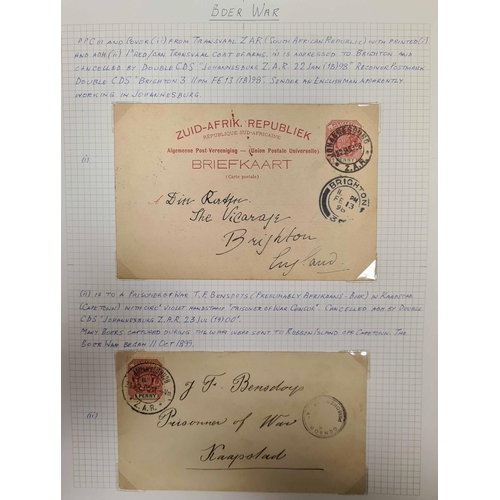 BOER WAR
P.P.C (i) AND COVER (ii) FROM TRANSVAAL Z.A.R (SOUTH AFRICAN REPUBLIC) WITH PRINTED (i)
AND ADH. (ii) 1d RED/CAR TRANSVAAL COAT OF ARMS. (i) IS ADDRESSED TO BRIGHTON AND
CANCELLED BY DOUBLE CDS "JOHANNESBURG Z.A.R. 22 JAN (18)98" RECEIVER POSTMARK
DOUBLE CDS "BRIGHTON 3 11 PM FE 13 (18)98". SENDER AN ENGLISHMAN APPARENTLY
WORKING IN JOHANNESBURG.
(i)
ZUID-AFRIK. REPUBLIEK
RÉPUBLIQUE SUD-AFRICAINE
Algemeene Post-Vereeniging — (Union Postale Universelle)
BRIEFKAART
(Carte postale)
JOHANNESBURG
Z.A.R.
PENNY
BRIGHTON
11 PM
FE 13
98
3
The Vicarage
Brighton
England
(ii) IS TO A PRISONER OF WAR T.F. BENSDOYS (PRESUMABLY AFRIKAANS-BOER) IN KAAPSTAD
(CAPETOWN) WITH CIRC. VIOLET HANDSTAMP "PRISONER OF WAR CENSOR". CANCELLED AGN BY DOUBLE
CDS "JOHANNESBURG Z.A.R. 23 JUL (19)00".
MANY BOERS CAPTURED DURING THE WAR WERE SENT TO ROBBEN ISLAND OFF CAPETOWN. THE
BOER WAR BEGAN 11 OCT 1899.
(ii)
JOHANNESBURG
Z.A.R.
PENNY
J F Bensdoys
Prisoner of War
Kaapstad